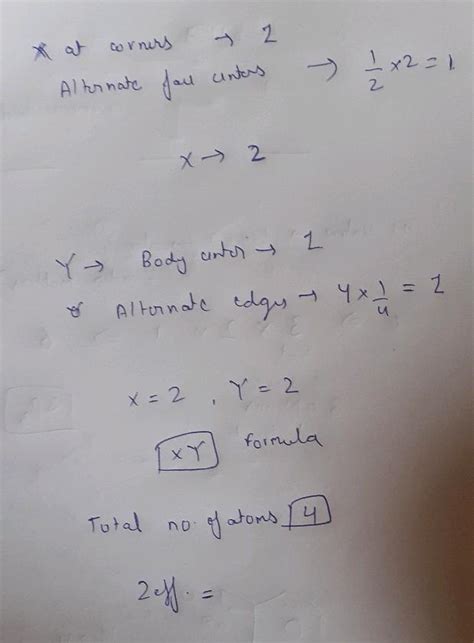 X at corners → 1
Alternate face centers → 1/2 × 2 = 1
X → 2
Y → Body center → 1
Alternate edges → 4 × 1/4 = 1
X = 2 , Y = 2
XY formula
Total no. of atoms 4
Zeff. =